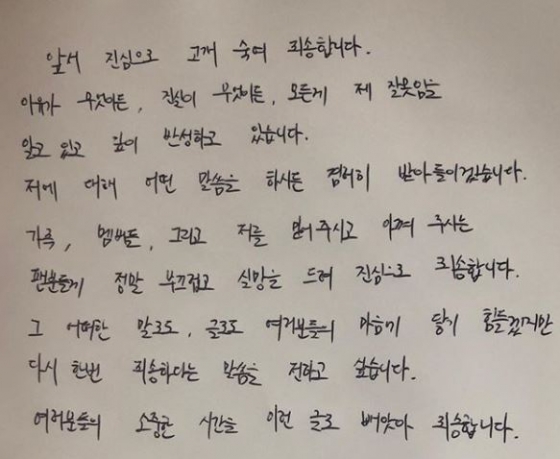 앞서 진심으로 고개 숙여 죄송합니다.
이유가 무엇이든, 진실이 무엇이든, 모든게 제 잘못임을
알고 있고 깊이 반성하고 있습니다.
저에 대해 어떤 말씀을 하시든 겸허히 받아들이겠습니다.
가족, 멤버들, 그리고 저를 믿어주시고 아껴 주시는
팬분들께 정말 부끄럽고 실망을 드려 진심으로 죄송합니다.
그 어떠한 말로도, 글로도 여러분들의 마음기 닿기 힘들겠지만
다시 한번 죄송하다는 말씀을 전하고 싶습니다.
여러분들의 소중한 시간을 이런 글로 빼앗아 죄송합니다.